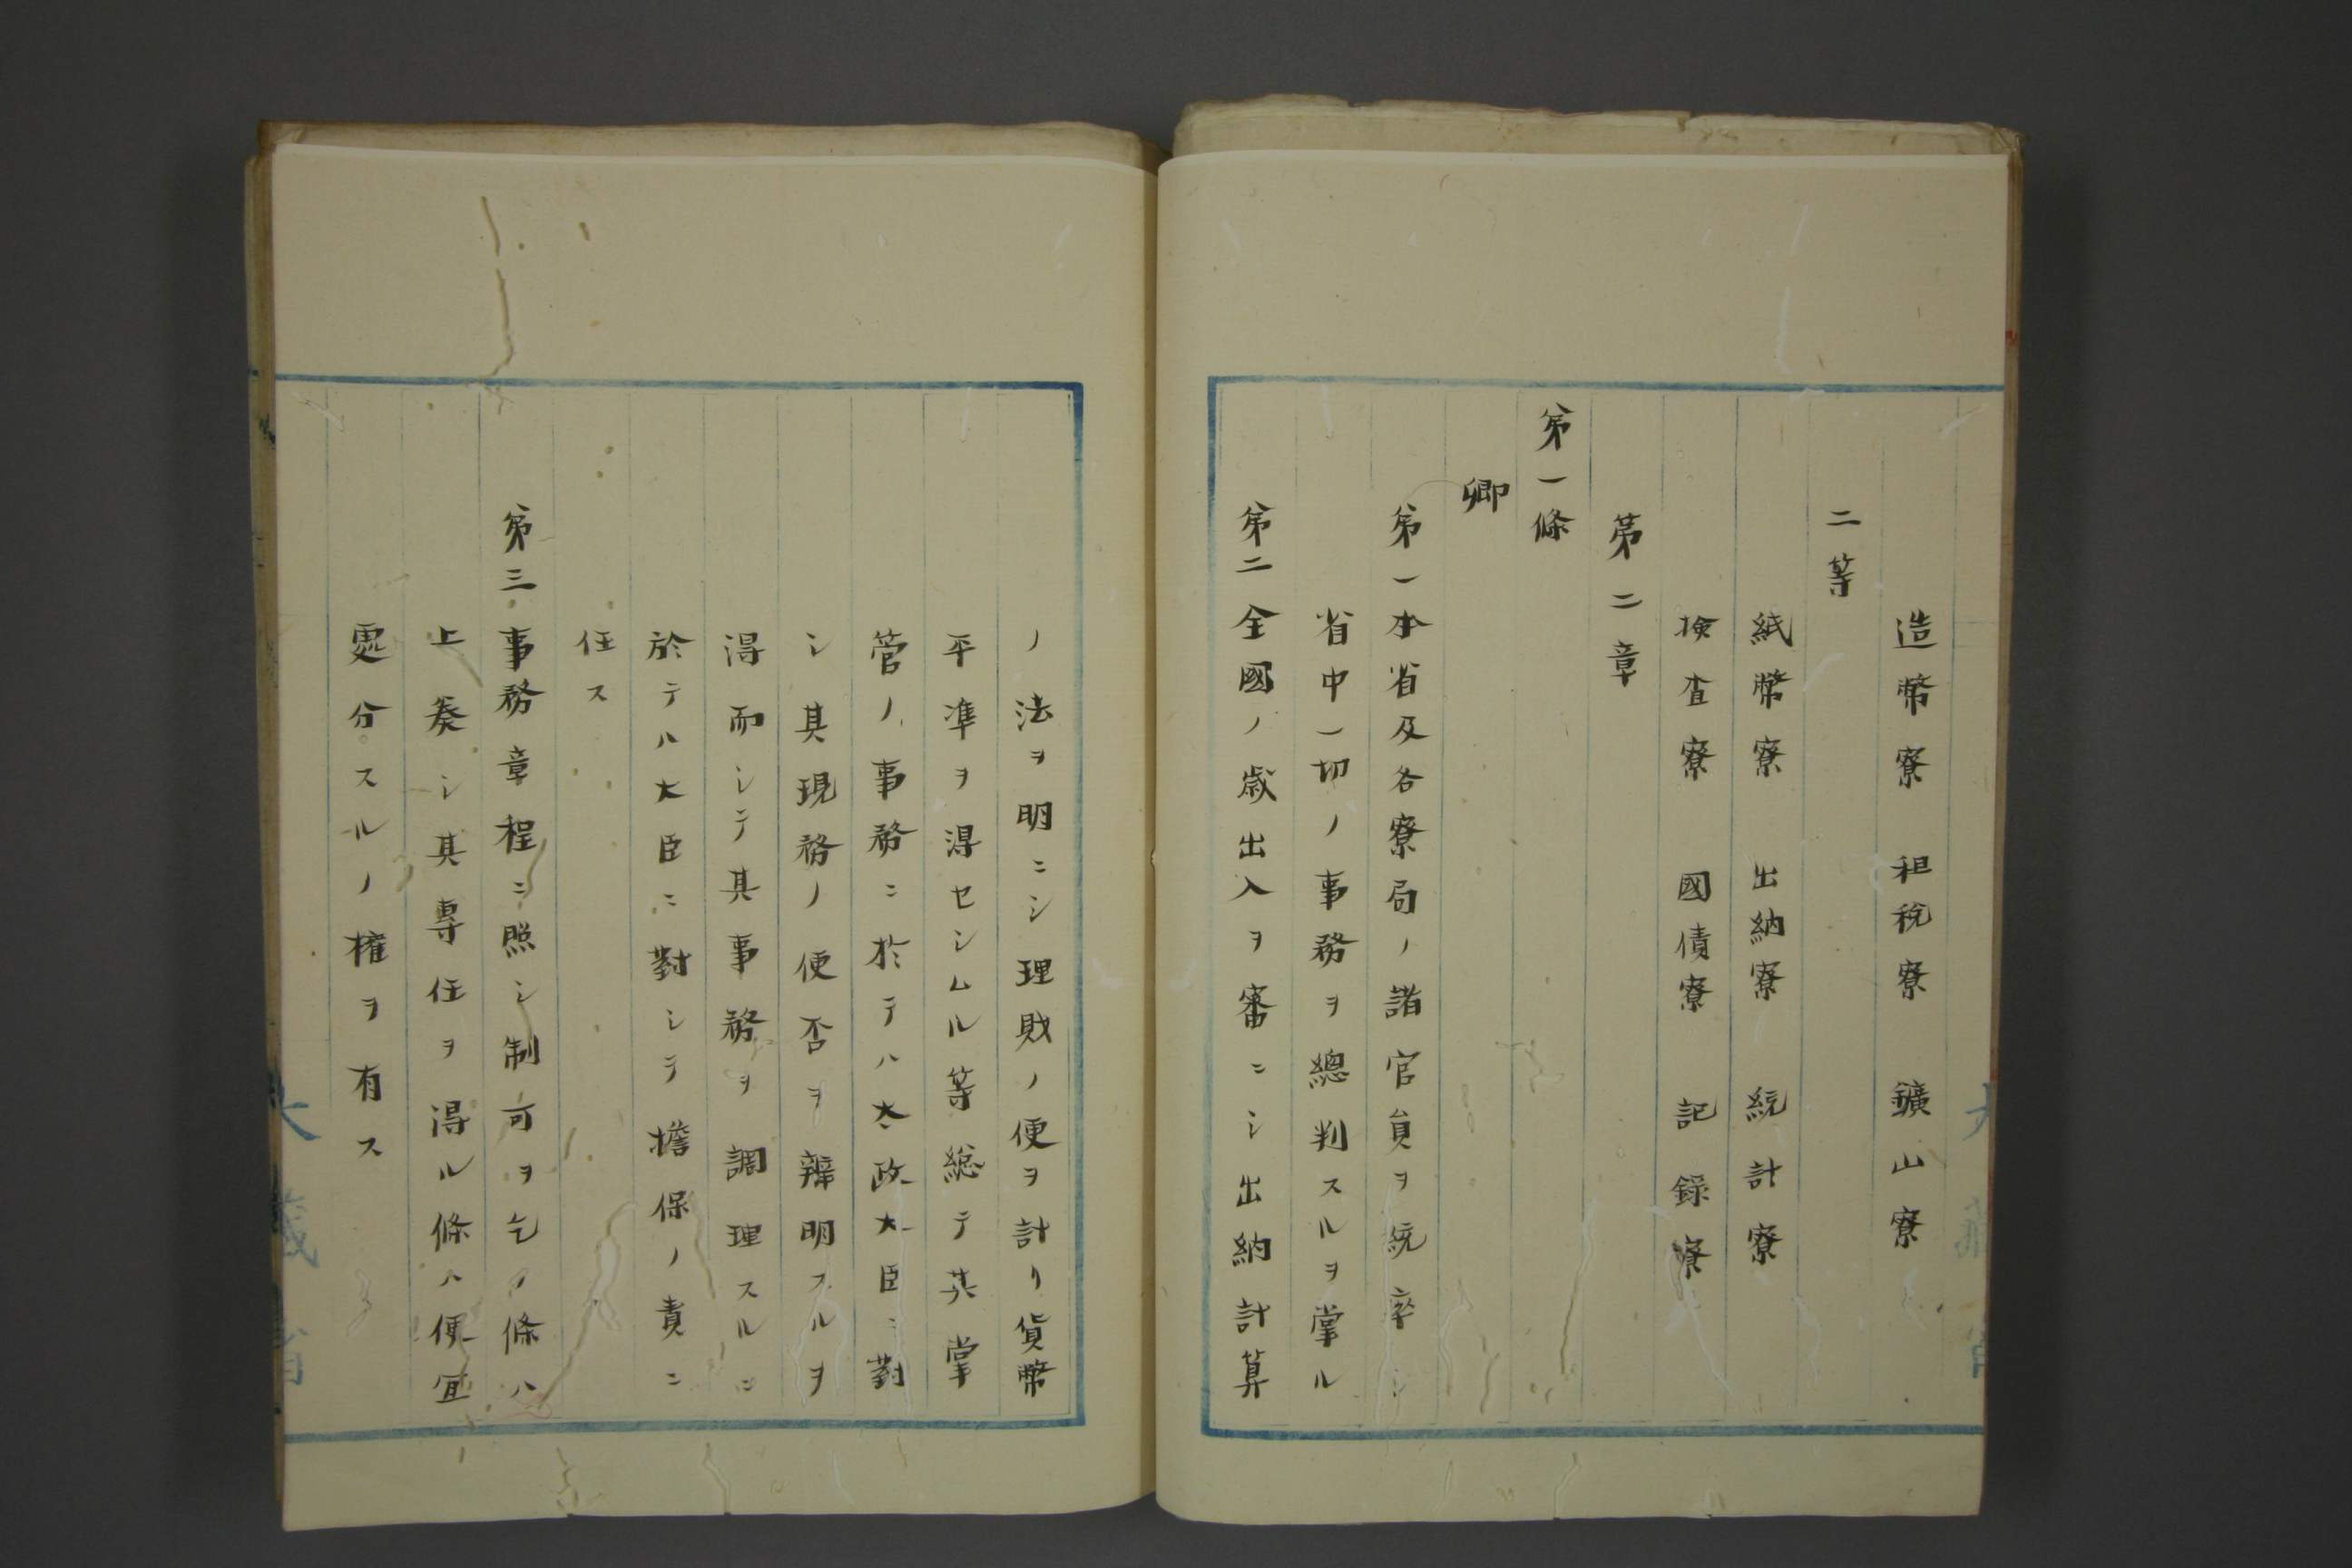 造幣寮　租税寮　鑛山寮
二等
紙幣寮　出納寮　統計寮
検査寮　國債寮　記録寮
第二章
第一條
卿
第一本省及各寮局ノ諸官員ヲ統率シ
省中一切ノ事務ヲ總判スルヲ掌ル
第二全國ノ歳出入ヲ審ニシ出納計算
ノ法ヲ明ニシ理財ノ便ヲ計リ貨幣
平準ヲ得セシムル等総テ其掌
管ノ事務ニ於テハ太政大臣ニ對
シ其現務ノ便否ヲ辨明スルヲ
得而シテ其事務ヲ調理スルニ
於テハ大臣ニ對シテ擔保ノ責ニ
任ス
第三事務章程ニ照シ制可ヲ乞フ條ハ
上奏シ其専任ヲ得ル條ハ便宜
處分スルノ権ヲ有ス
大蔵省